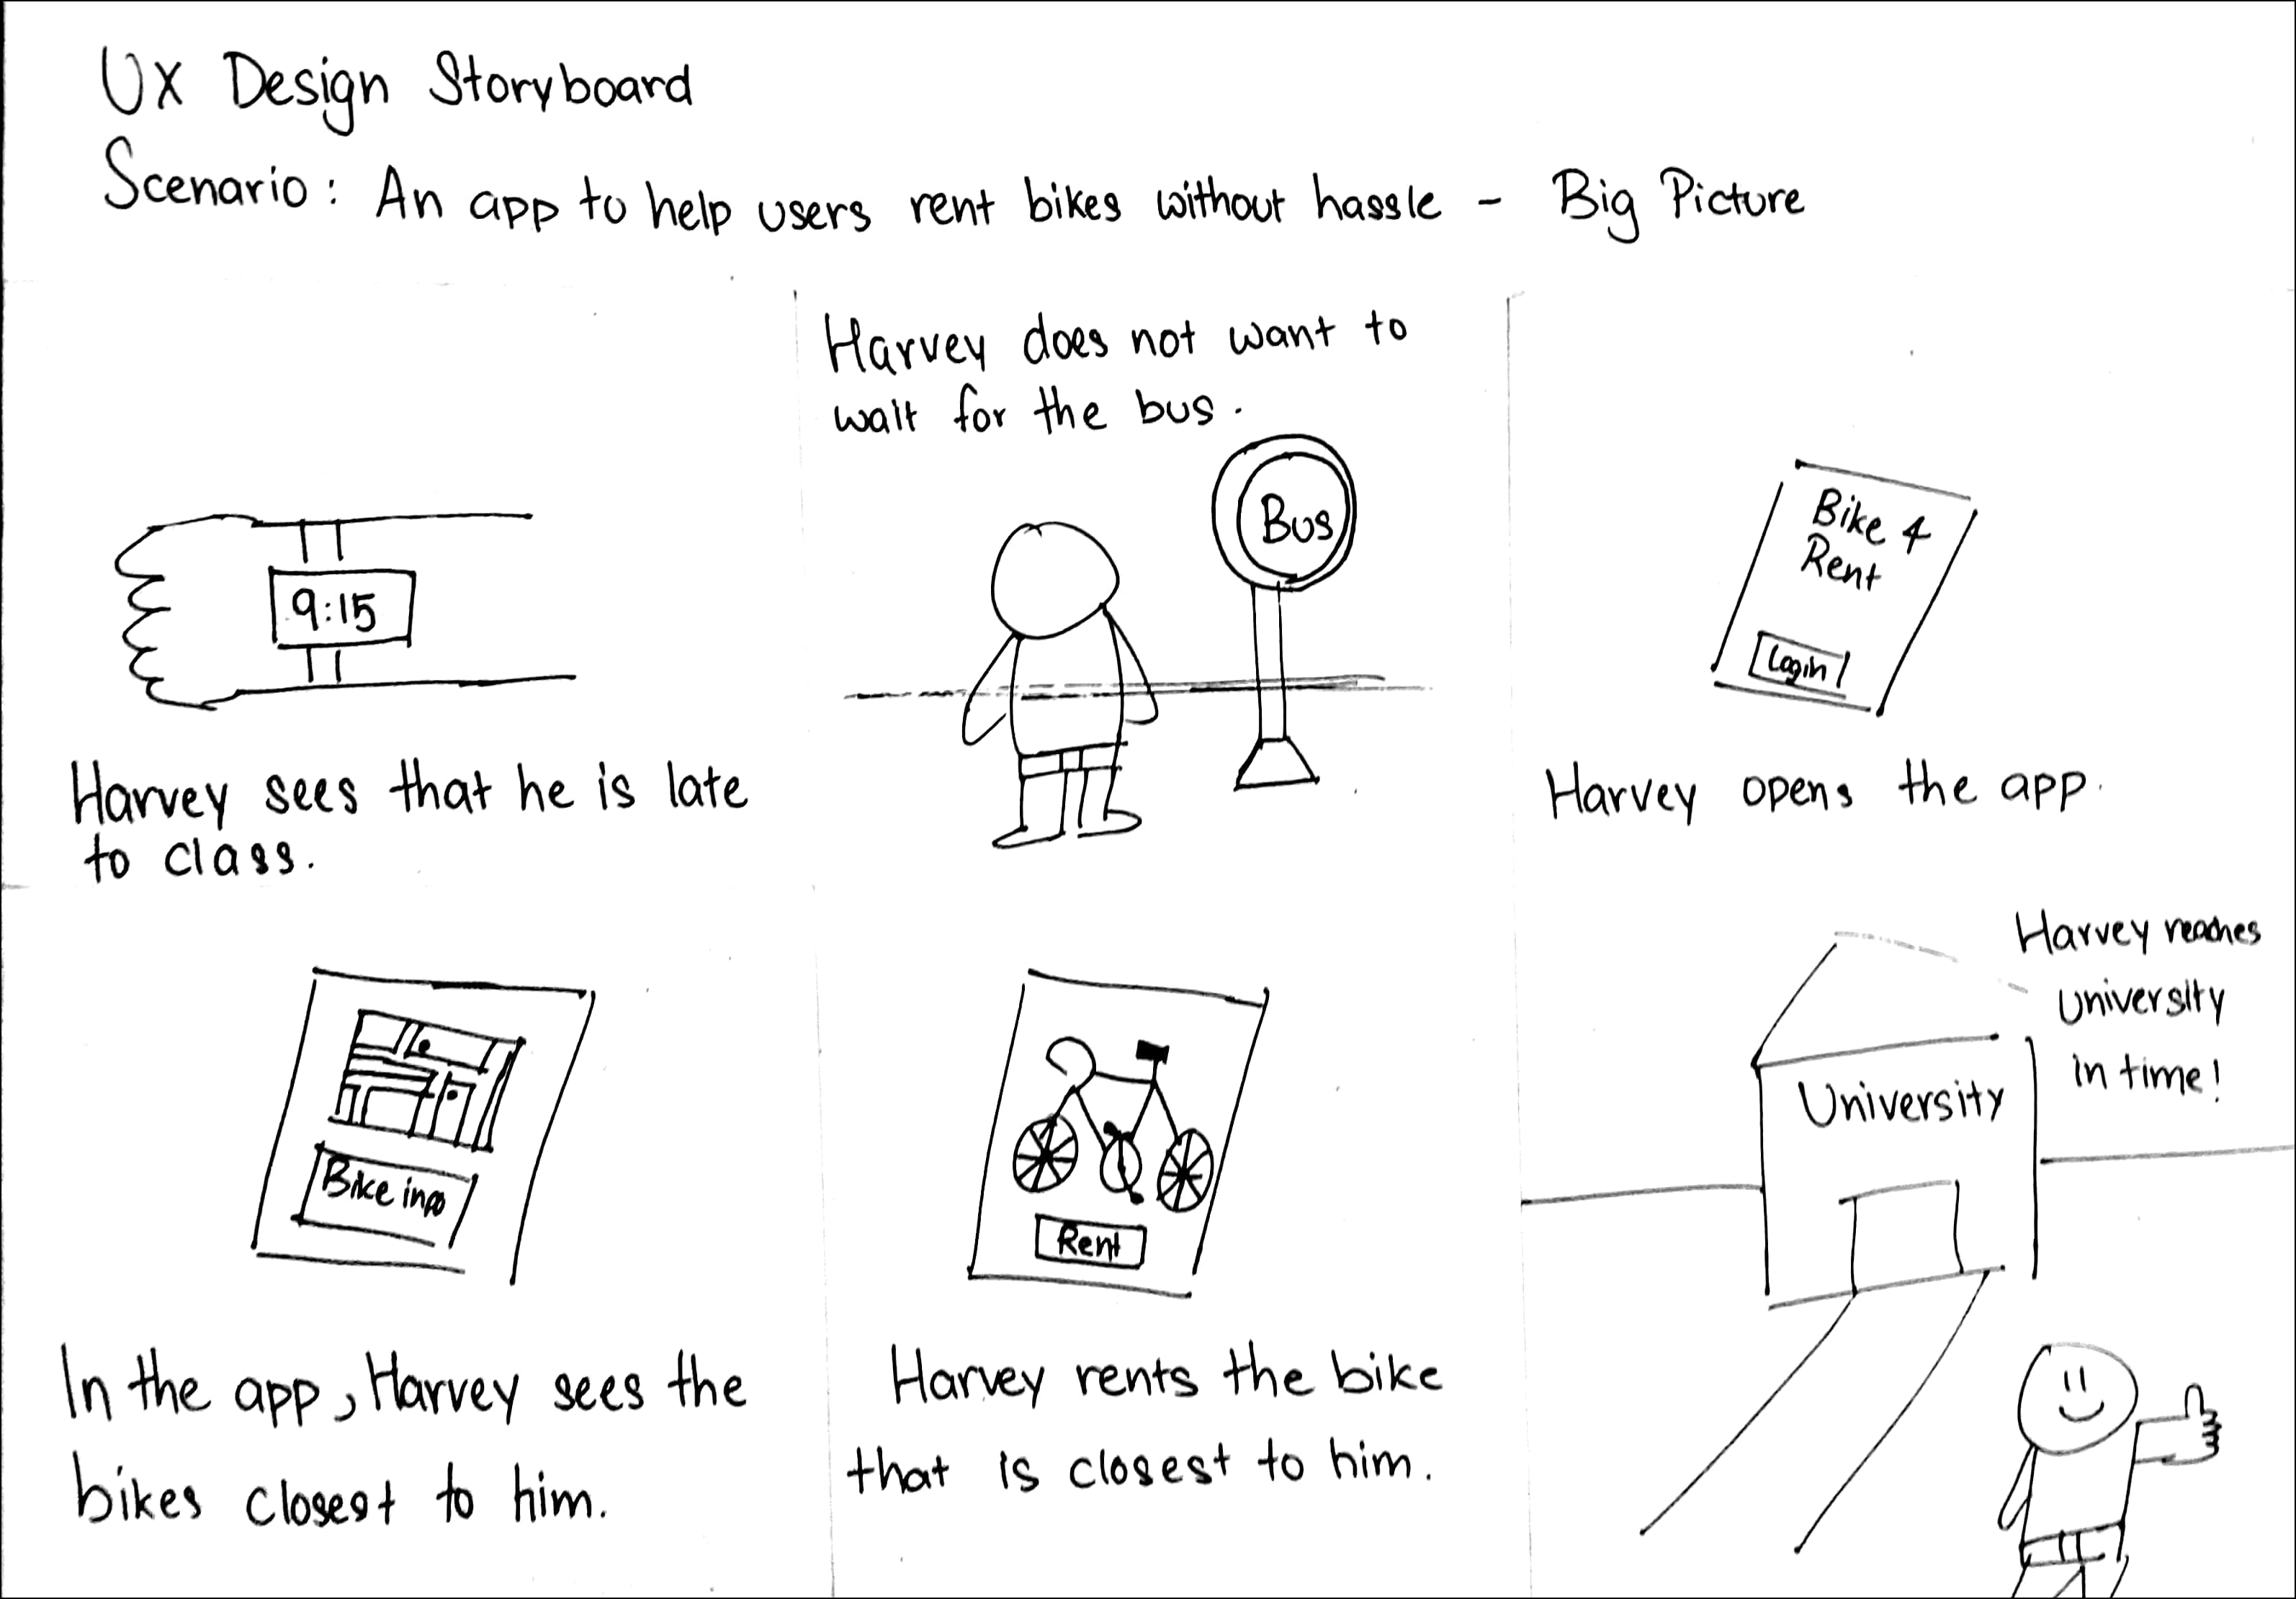 UX Design Storyboard
Scenario: An app to help users rent bikes without hassle - Big Picture
9:15
Harvey sees that he is late
to class.
Harvey does not want to
wait for the bus.
Bus
Bike 4
Rent
Login
Harvey opens the app.
Bike info
In the app, Harvey sees the
bikes closest to him.
Rent
Harvey rents the bike
that is closest to him.
Harvey reaches
university
in time!
University